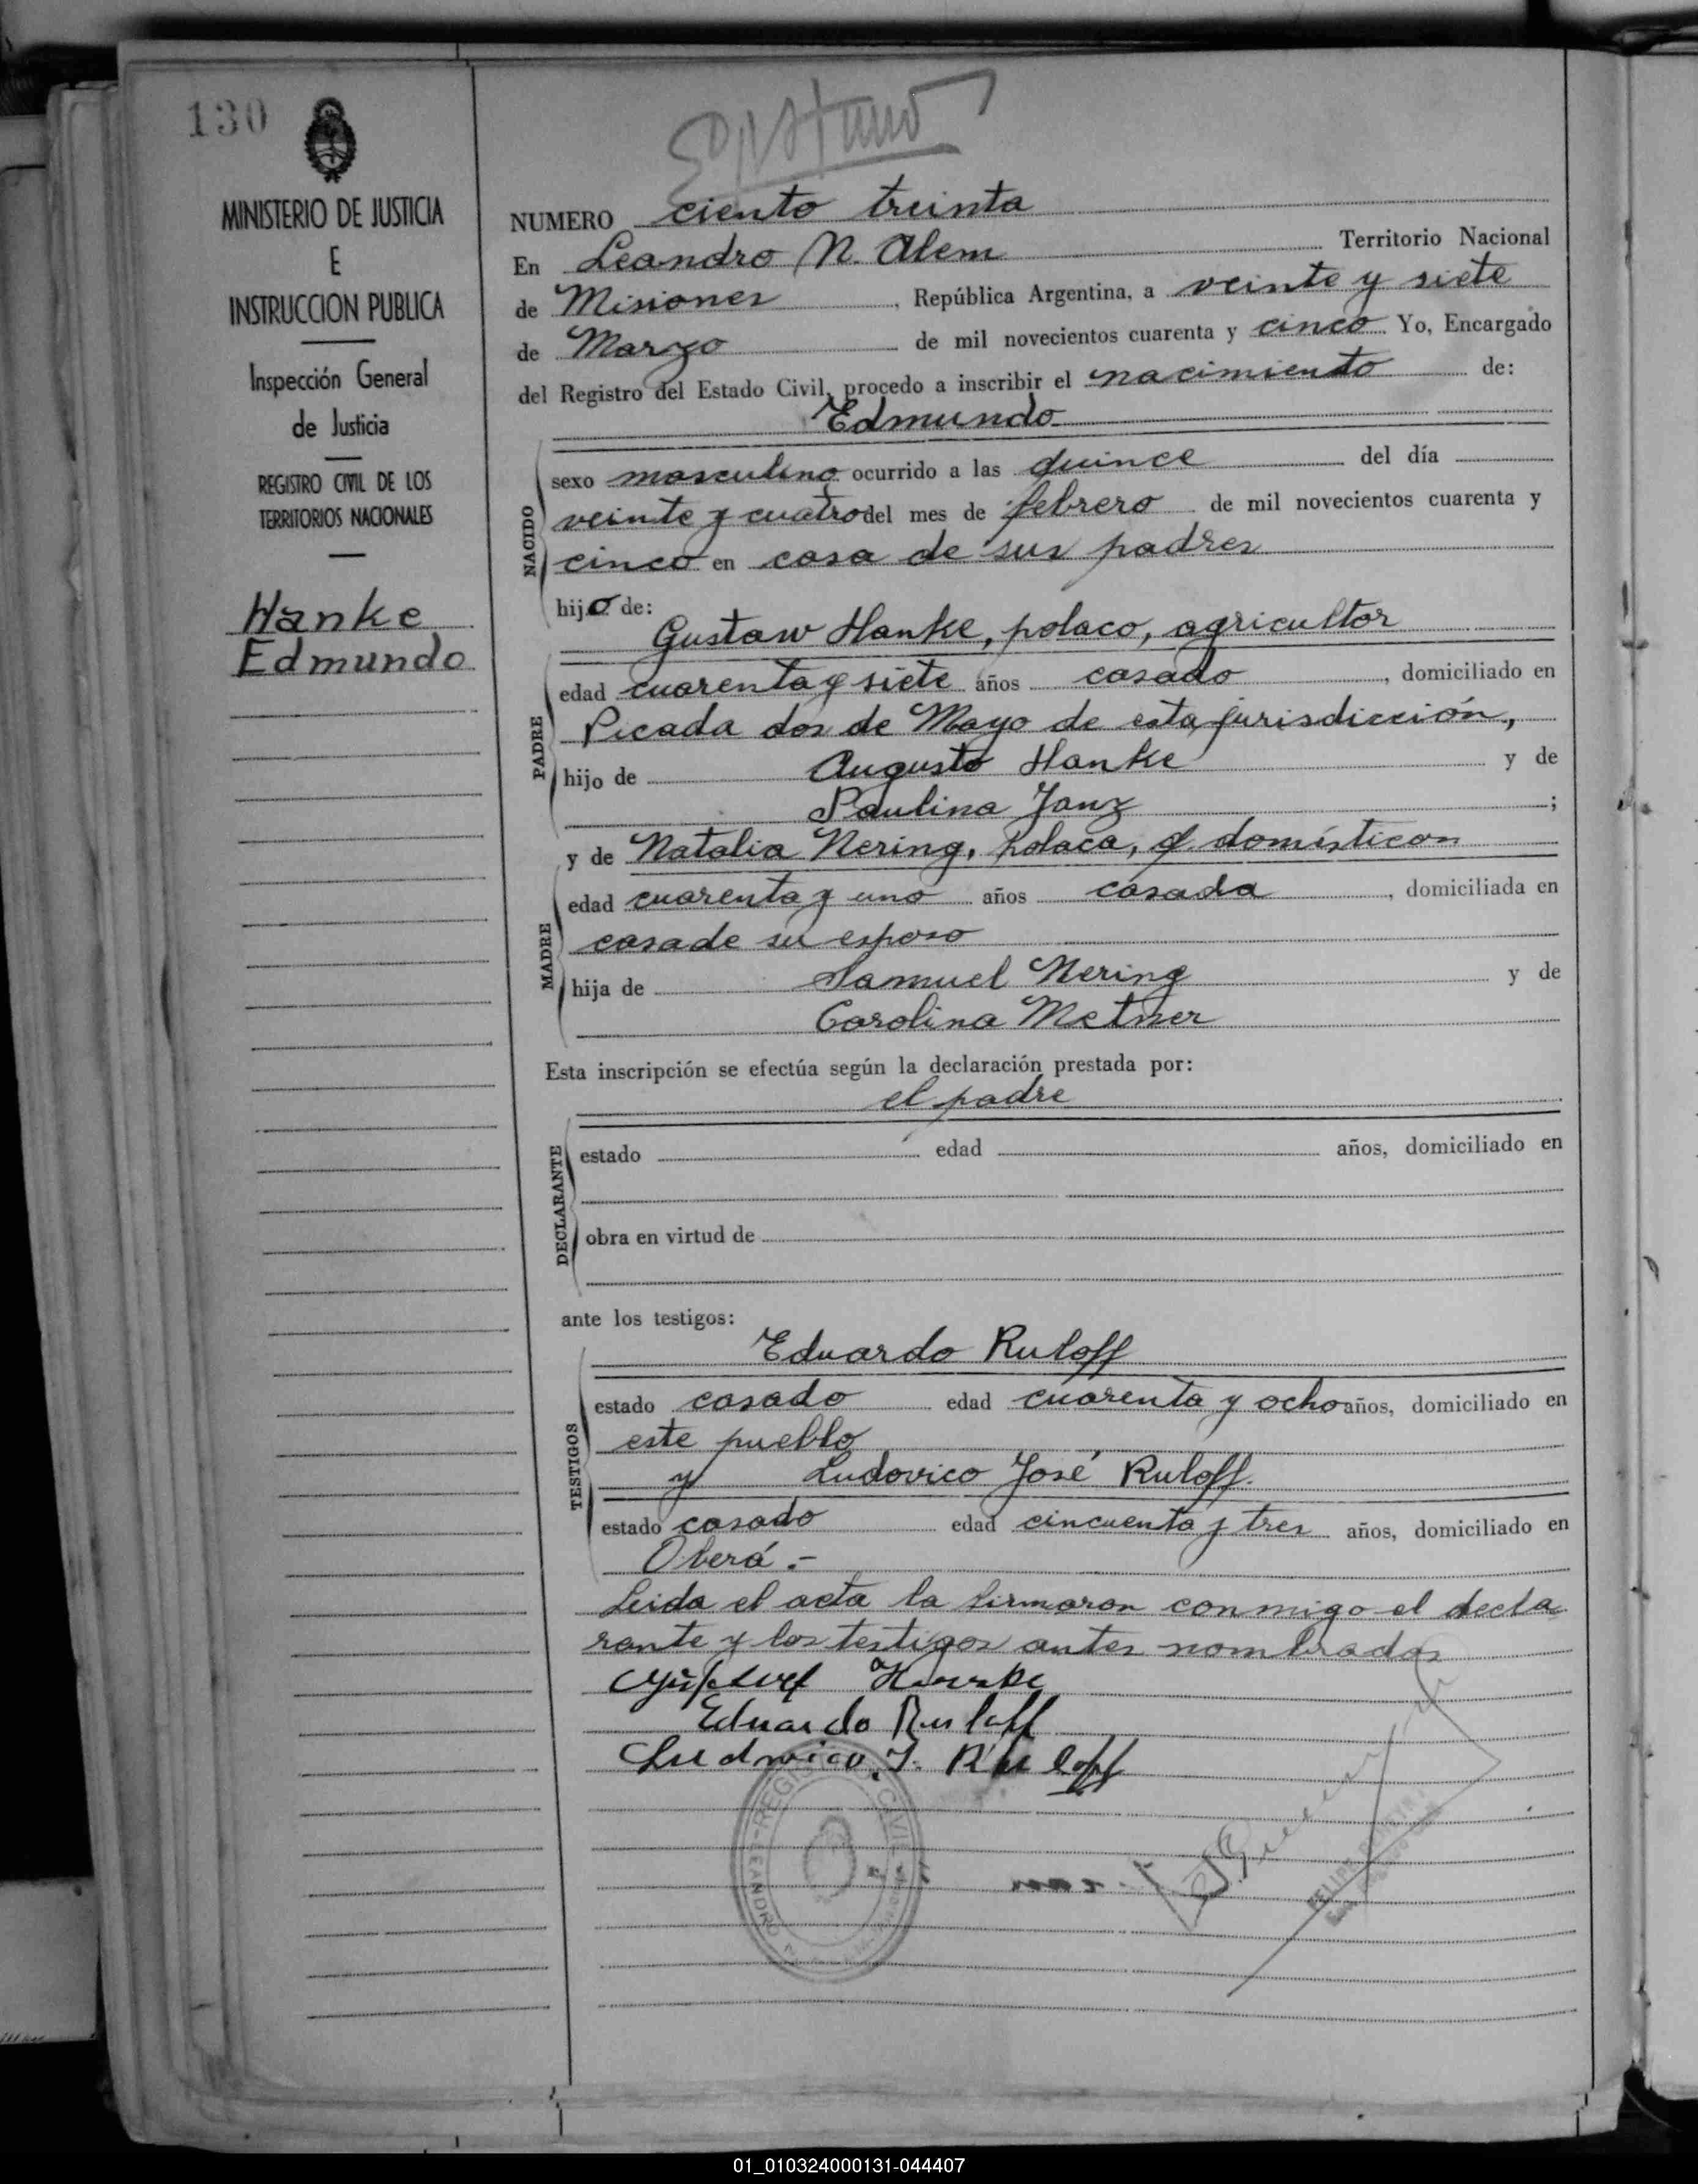 130
MINISTERIO DE JUSTICIA
E
INSTRUCCION PUBLICA
Inspección General
de Justicia
REGISTRO CIVIL DE LOS
TERRITORIOS NACIONALES
Hanke
Edmundo
NUMERO ciento treinta
En Leandro N. Alem Territorio Nacional
de Misiones, República Argentina, a veinte y siete
de Marzo de mil novecientos cuarenta y cinco Yo, Encargado
del Registro del Estado Civil, procedo a inscribir el nacimiento de:
Edmundo
NACIDO
sexo masculino ocurrido a las quince del día
veinte y cuatro del mes de febrero de mil novecientos cuarenta y
cinco en casa de sus padres
hijo de:
Gustaw Hanke, polaco, agricultor
PADRE
edad cuarenta y siete años casado, domiciliado en
Picada dos de Mayo de esta jurisdicción,
hijo de Augusto Hanke y de
Paulina Janz;
y de Natalia Nering, polaca, q. domésticos
MADRE
edad cuarenta y uno años casada, domiciliada en
casa de su esposo
hija de Samuel Nering y de
Carolina Metner
Esta inscripción se efectúa según la declaración prestada por:
el padre
DECLARANTE
estado edad años, domiciliado en
obra en virtud de
ante los testigos:
Eduardo Ruloff
TESTIGOS
estado casado edad cuarenta y ocho años, domiciliado en
este pueblo
y Ludovico José Ruloff.
estado casado edad cincuenta y tres años, domiciliado en
Oberá.-
Leida el acta la firmaron conmigo el decla
rante y los testigos antes nombrados
Gustav Hanke
Eduardo Ruloff
Ludovico J. Ruloff
01_010324000131-044407